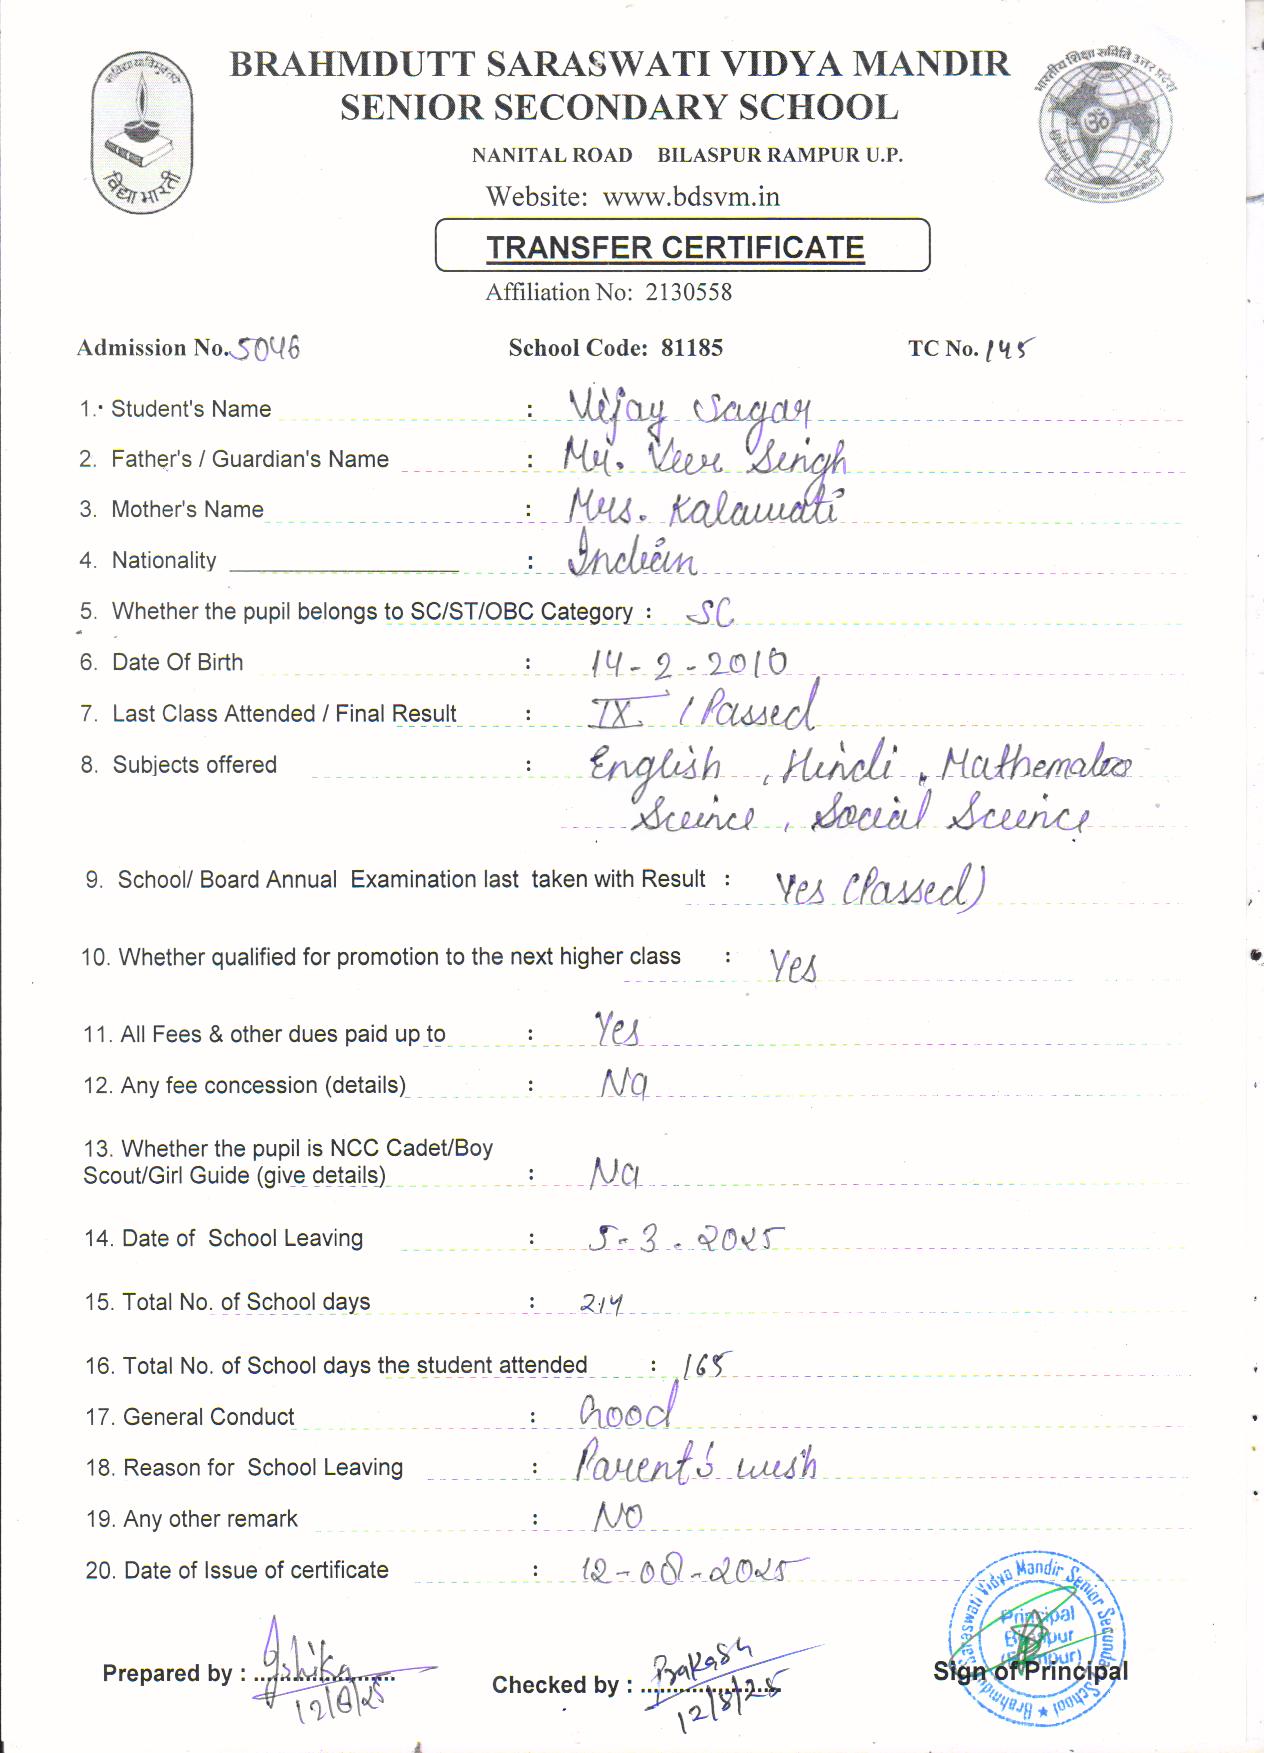 BRAHMDUTT SARASWATI VIDYA MANDIR
SENIOR SECONDARY SCHOOL
NANITAL ROAD BILASPUR RAMPUR U.P.
Website: www.bdsvm.in
विद्या भारती
TRANSFER CERTIFICATE
Affiliation No: 2130558
Admission No. 5046 School Code: 81185 TC No. 145
1. Student's Name : Vijay Sagar
2. Father's / Guardian's Name : Mr. Veer Singh
3. Mother's Name : Mrs. Kalawati
4. Nationality : Indian
5. Whether the pupil belongs to SC/ST/OBC Category : SC
6. Date Of Birth : 14-2-2010
7. Last Class Attended / Final Result : IX / Passed
8. Subjects offered : English, Hindi, Mathematics
Science, Social Science
9. School/ Board Annual Examination last taken with Result : Yes (Passed)
10. Whether qualified for promotion to the next higher class : Yes
11. All Fees & other dues paid up to : Yes
12. Any fee concession (details) : Na
13. Whether the pupil is NCC Cadet/Boy
Scout/Girl Guide (give details) : Na
14. Date of School Leaving : 5-3-2025
15. Total No. of School days : 214
16. Total No. of School days the student attended : 165
17. General Conduct : Good
18. Reason for School Leaving : Parent's wish
19. Any other remark : NO
20. Date of Issue of certificate : 12-08-2025
Prepared by : Ashika
12/8/25
Checked by : Prakash
12/8/25
Sign of Principal
Saraswati Vidya Mandir Senior Secondary School
Principal